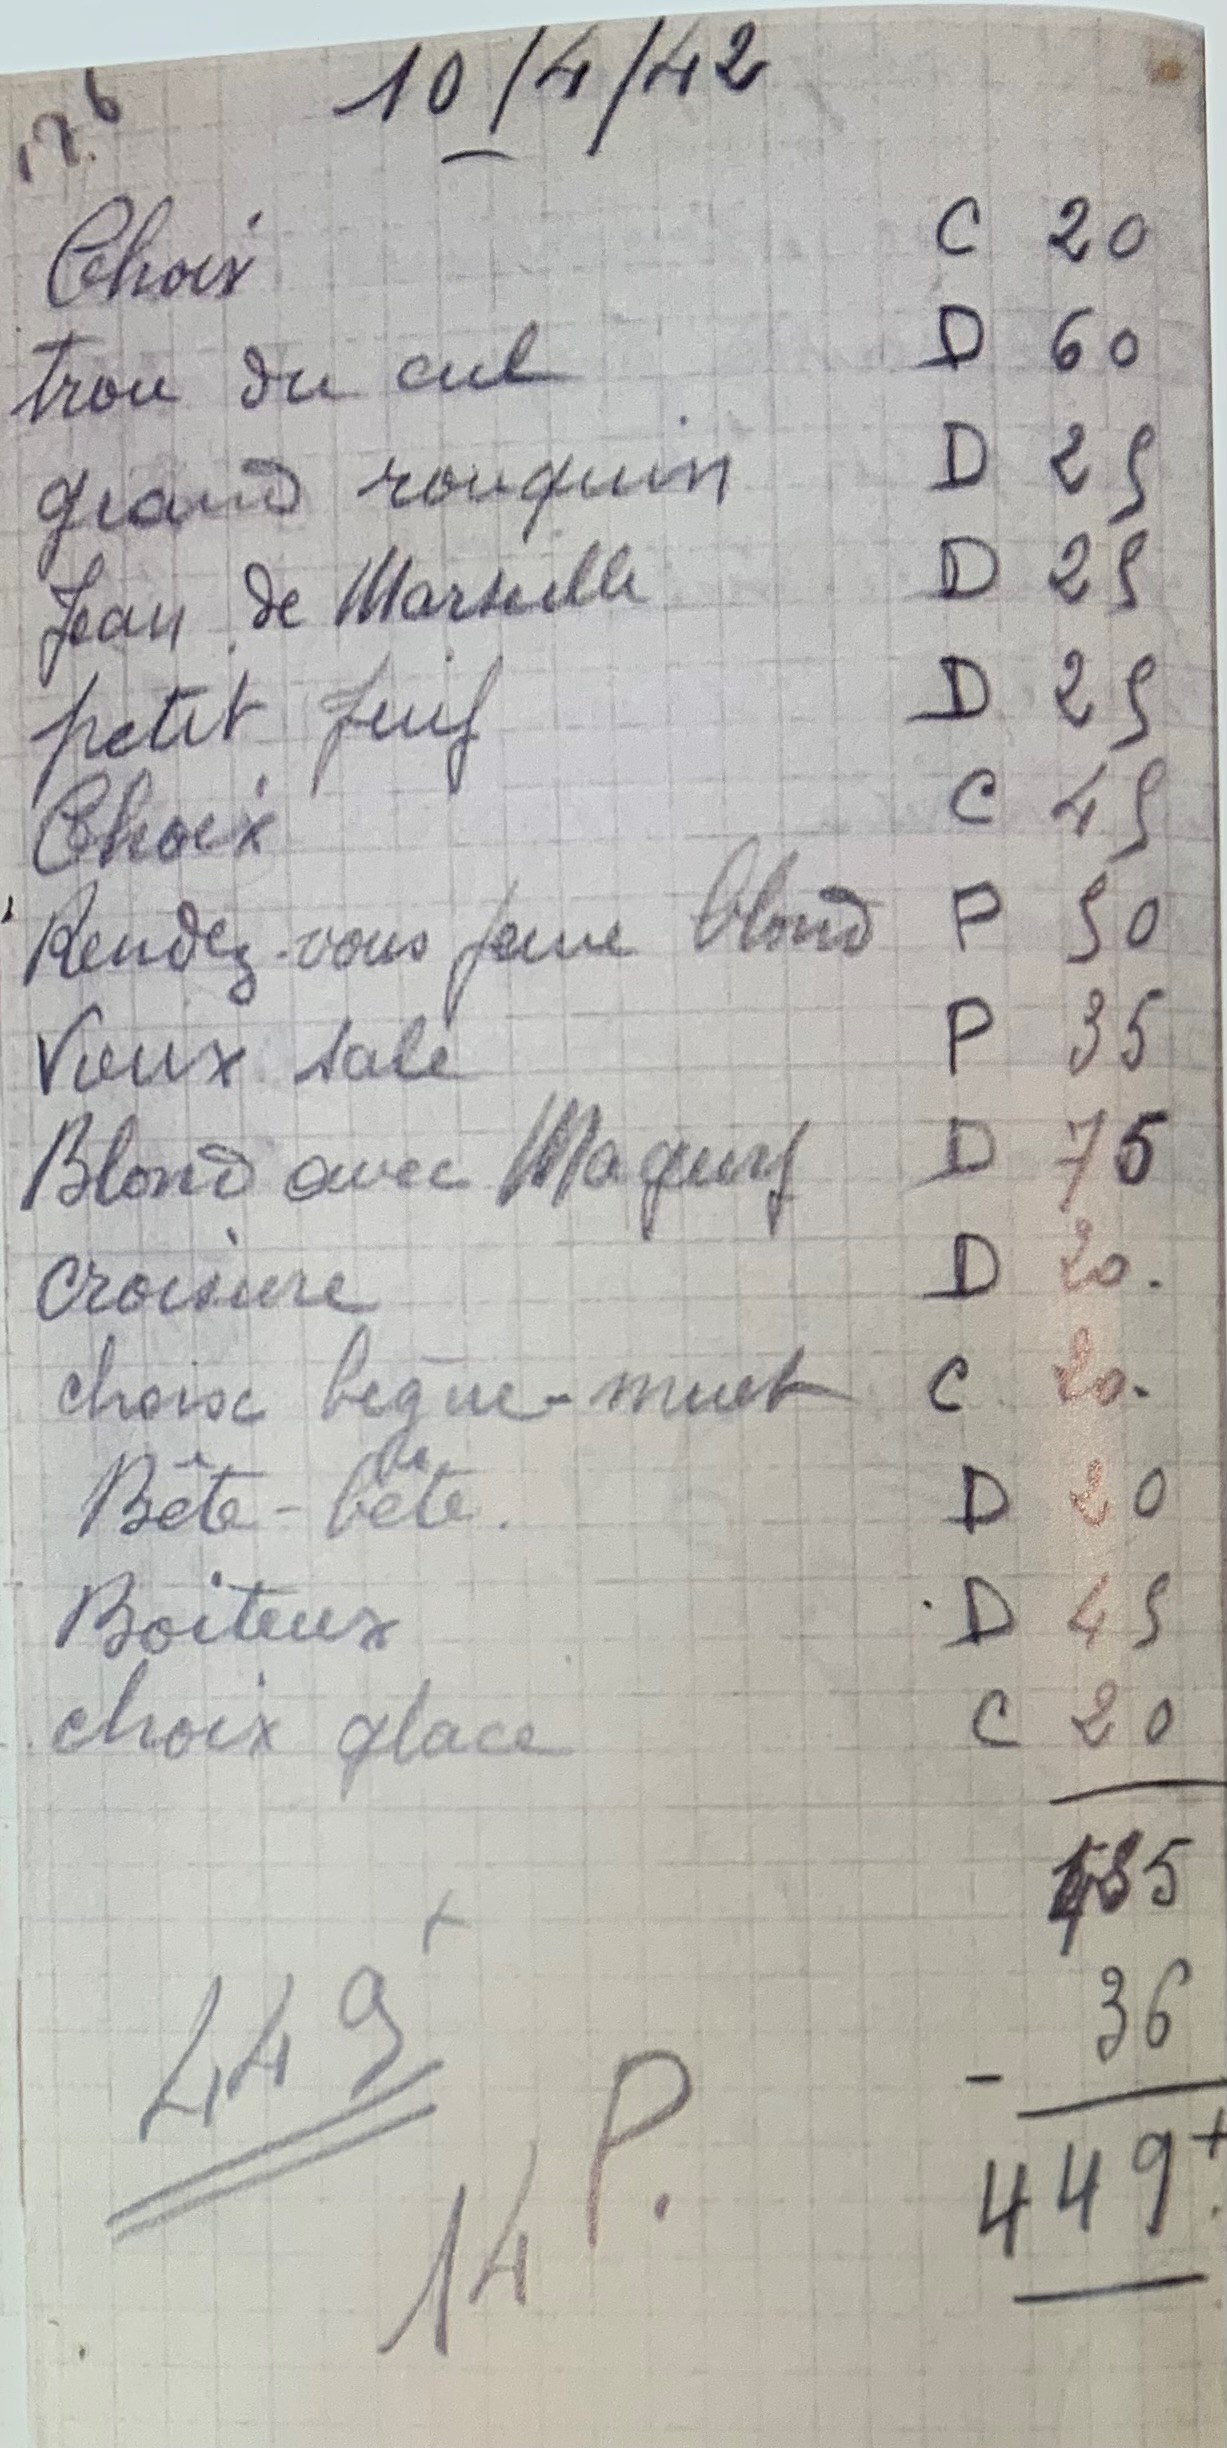 10/4/42
Choix C 20
trou du cul D 60
grand rouquin D 25
Jean de Marseille D 25
petit juif D 25
Choix C 45
Rendez-vous jeune blond P 50
Vieux sale P 35
Blond avec D 75
croisure D 20.
choix bègue-muet C 20.
Bête-bête. D 20
Boiteux D 45
choix glace C 20
485
- 36
449+
449+
14 P.